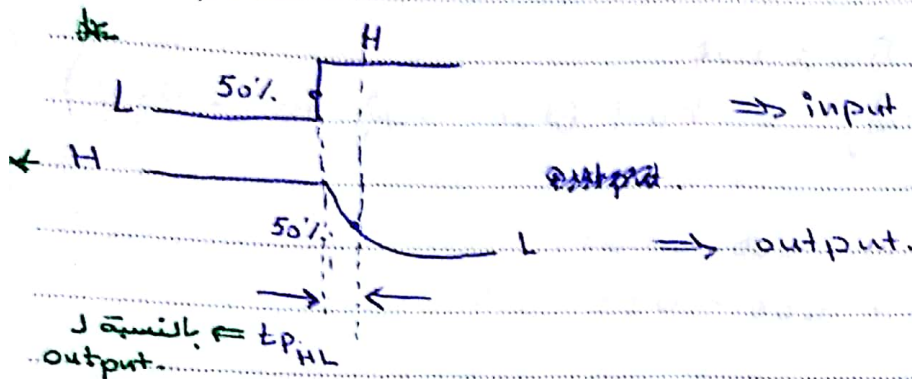 H
L 50% ⇒ input
H
50% L ⇒ output.
بالنسبة لـ ⇐ tPHL
output.